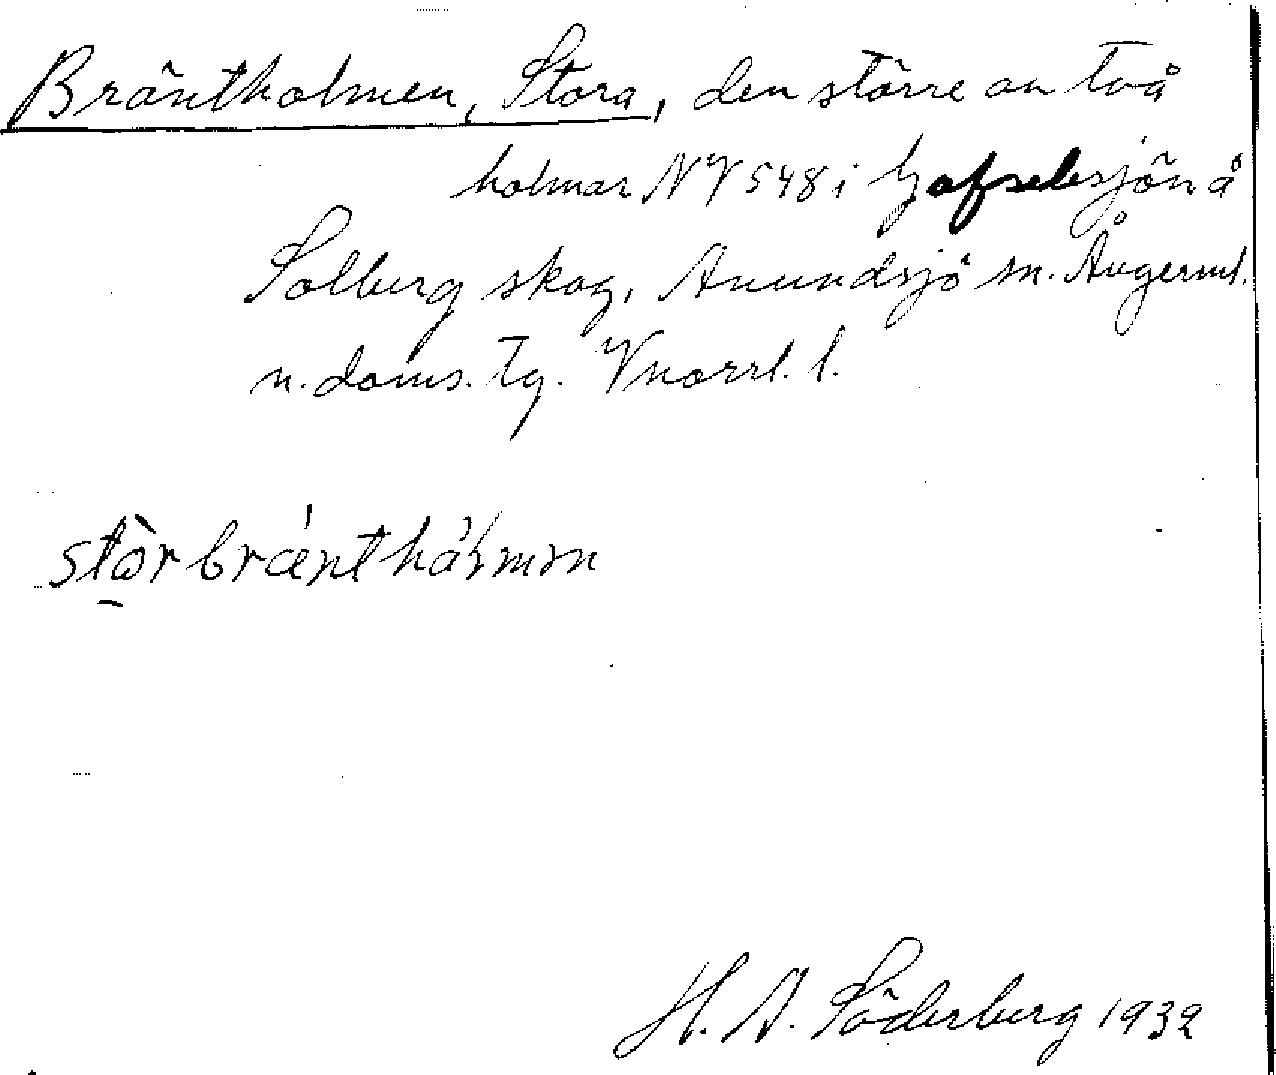 Bräntholmen, Stora, den större av två
holmar NV 548 i Gafselesjön å
Solberg skog, Anundsjö sn. Ångerml.
n. doms. tg. Vnorrl. l.
H. A. Söderberg 1932